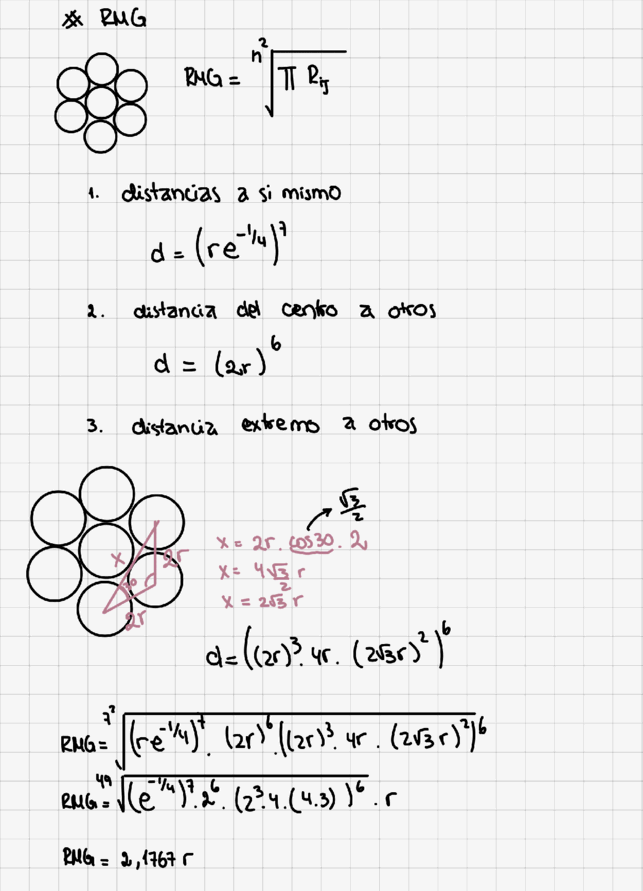 ※ RMG
RMG = ⁿ²√(∏ Rij)
1. distancias a si mismo
d = (re^-1/4)^7
2. distancia del centro a otros
d = (2r)^6
3. distancia extremo a otros
√3/2
x = 2r . cos30 . 2
x = 4√3/2 r
x = 2√3 r
x
2r
2r
d = ((2r)^3 . 4r . (2√3r)^2)^6
RMG = ⁷²√((re^-1/4)^7 . (2r)^6 . ((2r)^3 . 4r . (2√3 r)^2)^6)
RMG = ⁴⁹√((e^-1/4)^7 . 2^6 . (2^3 . 4 . (4.3))^6) . r
RMG = 2,1767 r